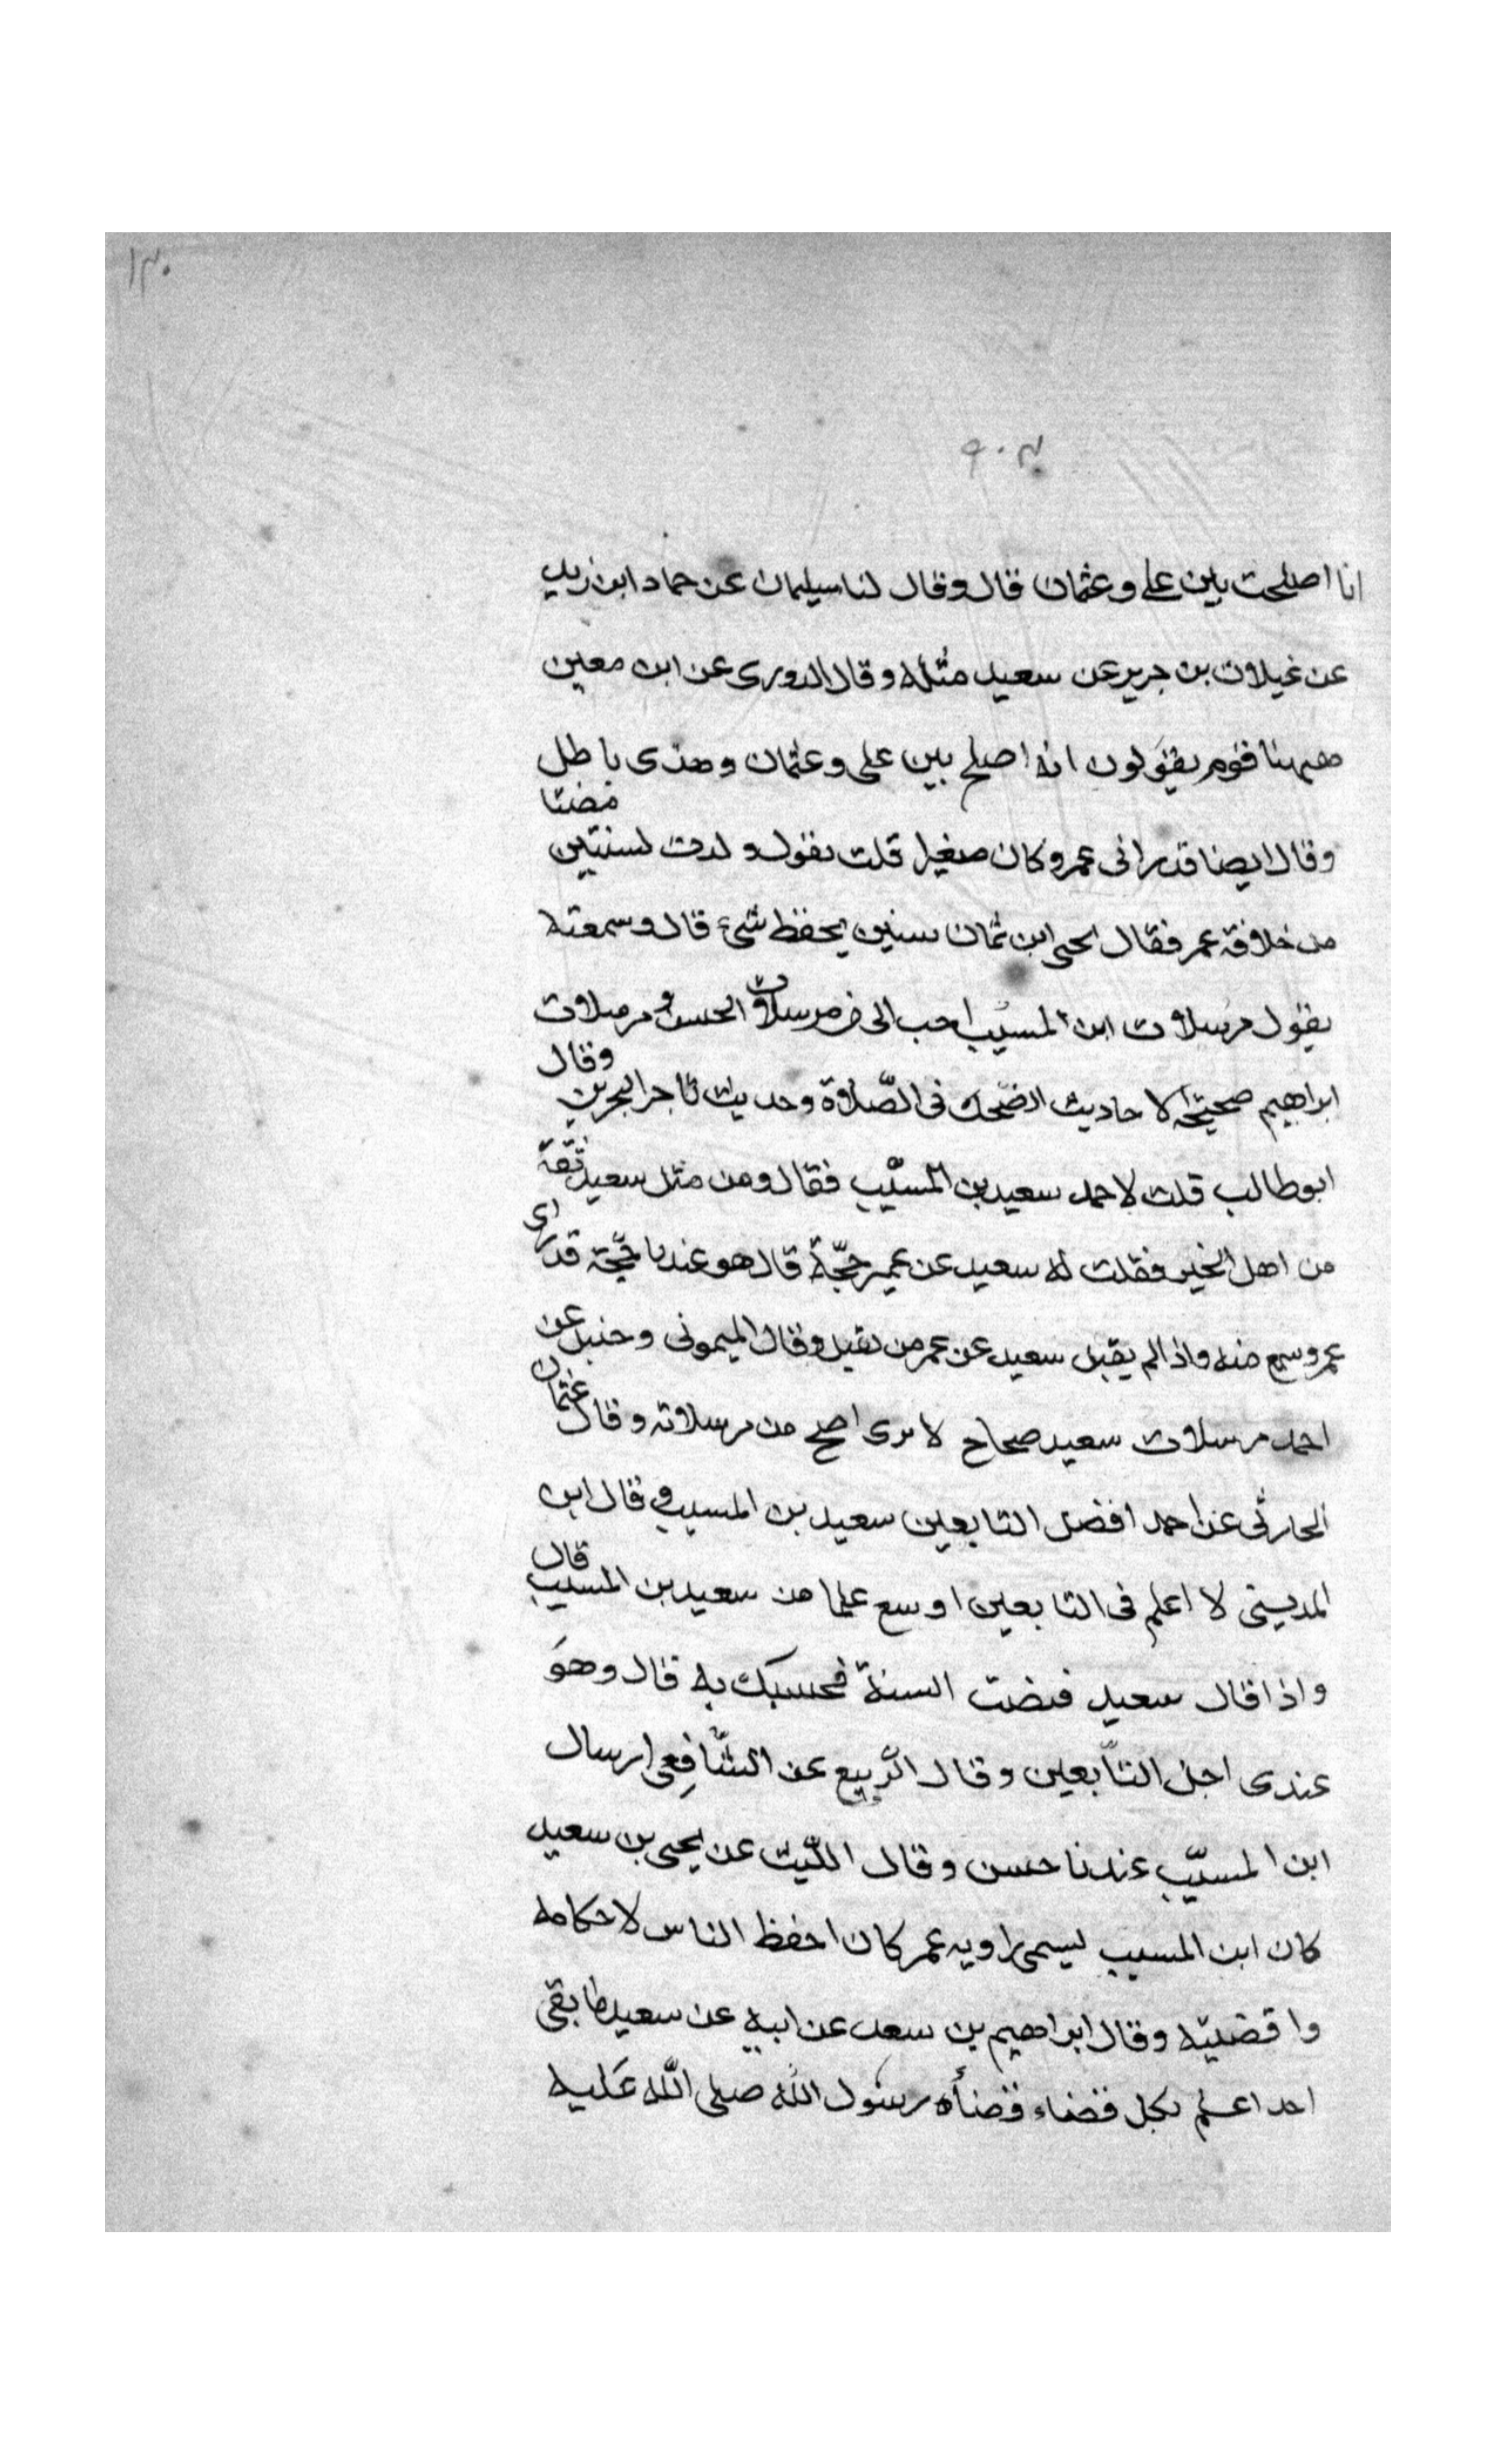 ١٣٠
٩٠٣
انا اصلحت بين على وعثمان قال وقال لنا سليمان عن حماد ابن زيد
عن غيلان بن جرير عن سعيد مثله وقال الدورى عن ابن معين
ههنا قوم يقولون انه اصلح بين على وعثمان وهذى باطل
وقال ايضا قد رانى عمر وكان صغيرا قلت يقول ولدت لسنتين مضتا
من خلافة عمر فقال يحيى ابن ثمان سنين يحفظ شىء قال وسمعته
يقول مرسلات ابن المسيب احب الى من مرسلات الحسن و مرسلات
ابراهيم صحيحة الا حاديث الضحك فى الصّلاوة وحديث تاجر البحرين وقال
ابوطالب قلت لاحمد سعيد بن المسّيب فقال ومن مثل سعيد ثقة
من اهل الخير فقلت له سعيد عن عمر حجّة قال هو عندنا حجّة قد راى
عمر وسمع منه واذا لم يقبل سعيد عن عمر من يقبل وقال الميمونى وحنبل عن
احمد مرسلات سعيد صحاح لا نرى اصح من مرسلاته وقال عثمان
الحارثى عن احمد افضل التابعين سعيد بن المسيب و قال ابن
المدينى لا اعلم فى التابعين اوسع علما من سعيد بن المسيب قال
واذا قال سعيد مضت السنة فحسبك به قال وهوَ
عندى اجل التّابعين وقال الرّبيع عن الشّافِعى ارسال
ابن المسيّب عندنا حسن وقال اللّيث عن يحيى بن سعيد
كان ابن المسيب ليسمى راويه عمر كان احفظ الناس لاحكامه
واقضيّه وقال ابراهيم بن سعد عن ابيه عن سعيد ما بقى
احد اعلم بكل قضاء قضأه رسول الله صلى اللّه عَليه